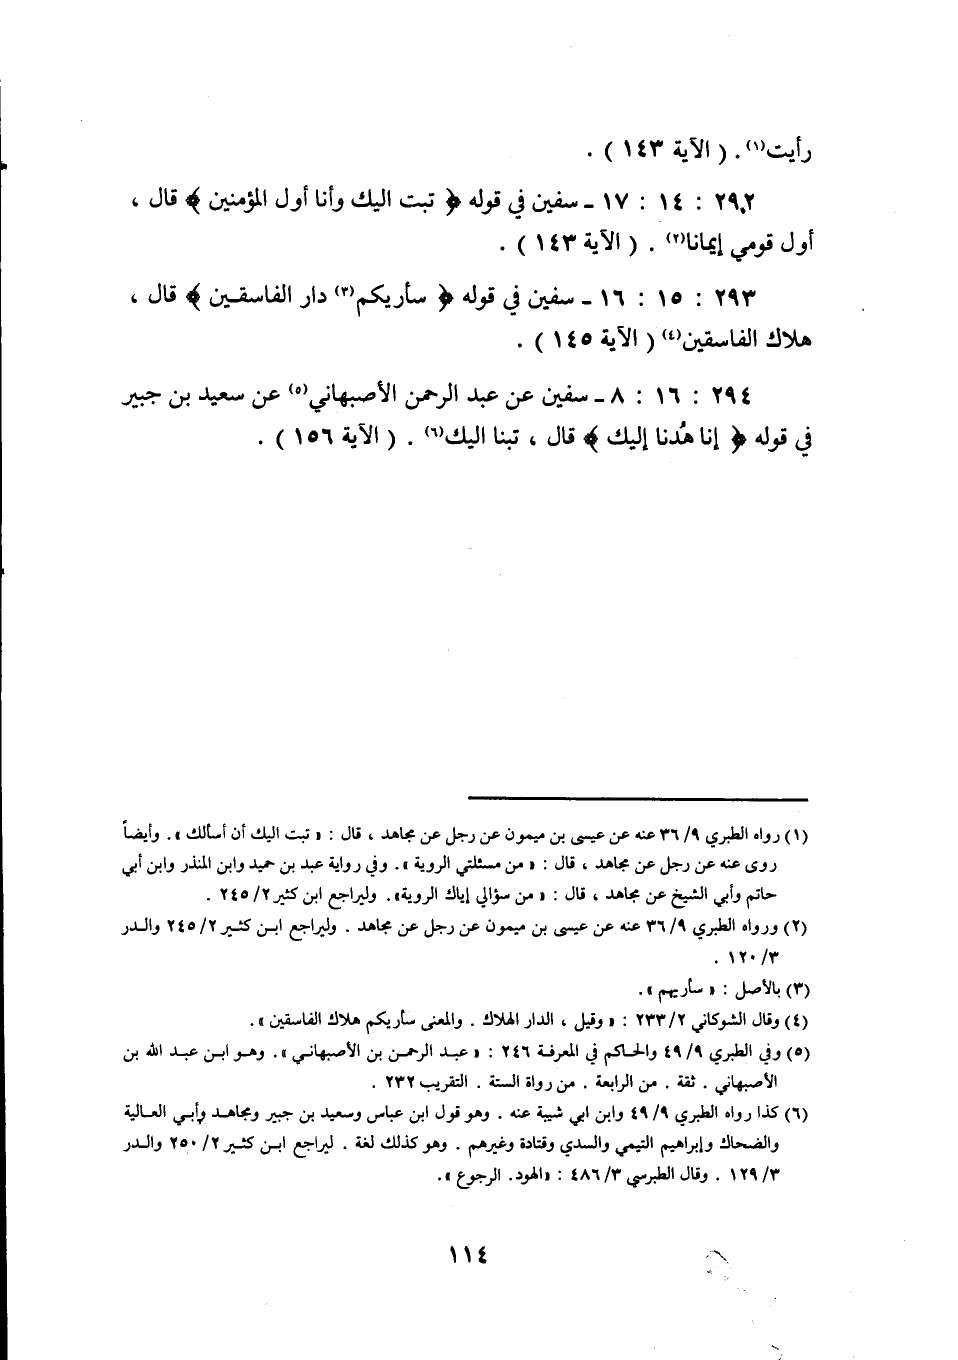 رأيت(١) . ( الآية ١٤٣ ) .
٢٩٢ : ١٤ : ١٧ ـ سفين في قوله ﴿ تبت اليك وأنا أول المؤمنين ﴾ قال ،
أول قومي إيمانا(٢) . ( الآية ١٤٣ ) .
٢٩٣ : ١٥ : ١٦ ـ سفين في قوله ﴿ سأريكم(٣) دار الفاسقين ﴾ قال ،
هلاك الفاسقين(٤) ( الآية ١٤٥ ) .
٢٩٤ : ١٦ : ٨ ـ سفين عن عبد الرحمن الأصبهاني(٥) عن سعيد بن جبير
في قوله ﴿ إنا هُدنا إليك ﴾ قال ، تبنا اليك(٦) . ( الآية ١٥٦ ) .
(١) رواه الطبري ٩/ ٣٦ عنه عن عيسى بن ميمون عن رجل عن مجاهد ، قال : « تبت اليك أن أسألك » . وأيضاً
روى عنه عن رجل عن مجاهد ، قال : « من مسئلتي الروية » . وفي رواية عبد بن حميد وابن المنذر وابن أبي
حاتم وأبي الشيخ عن مجاهد ، قال : « من سؤالي إياك الروية» . وليراجع ابن كثير ٢/ ٢٤٥ .
(٢) ورواه الطبري ٩/ ٣٦ عنه عن عيسى بن ميمون عن رجل عن مجاهد . وليراجع ابن كثير ٢/ ٢٤٥ والدر
٣/ ١٢٠ .
(٣) بالأصل : « سأريهم » .
(٤) وقال الشوكاني ٢/ ٢٣٣ : « وقيل ، الدار الهلاك . والمعنى سأريكم هلاك الفاسقين » .
(٥) وفي الطبري ٩/ ٤٩ والحاكم في المعرفة ٢٤٦ : « عبد الرحمن بن الأصبهاني » . وهو ابن عبد الله بن
الأصبهاني . ثقة . من الرابعة . من رواة الستة . التقريب ٢٣٢ .
(٦) كذا رواه الطبري ٩/ ٤٩ وابن ابي شيبة عنه . وهو قول ابن عباس وسعيد بن جبير ومجاهد وأبي العالية
والضحاك وإبراهيم التيمي والسدي وقتادة وغيرهم . وهو كذلك لغة . ليراجع ابن كثير ٢/ ٢٥٠ والدر
٣/ ١٢٩ . وقال الطبرسي ٣/ ٤٨٦ : «الهود. الرجوع » .
١١٤